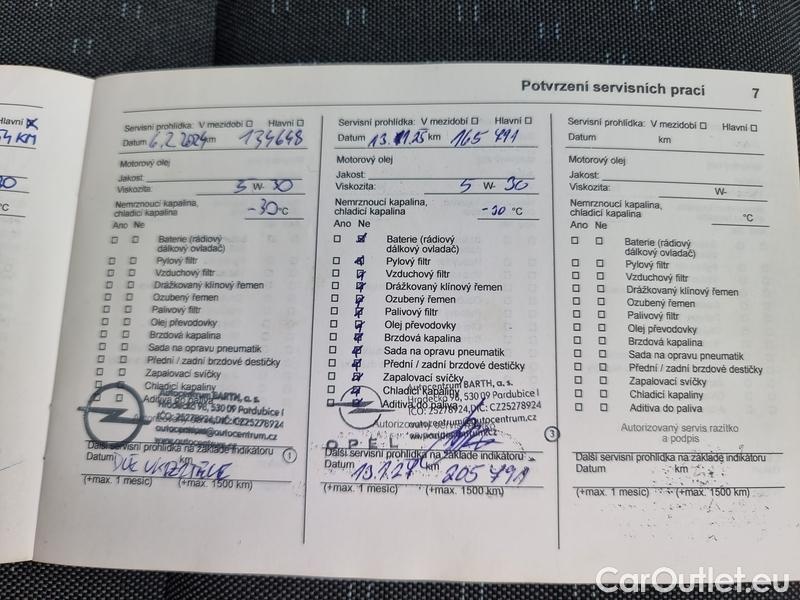 Potvrzení servisních prací 7
Hlavní
KM
°C
Servisní prohlídka: V mezidobí ☐ Hlavní ☐
Datum 6.2.2024 km 134648
Motorový olej
Jakost:
Viskozita: 5 W- 30
Nemrznoucí kapalina,
chladicí kapalina -30 °C
Ano Ne
Baterie (rádiový
dálkový ovladač)
Pylový filtr
Vzduchový filtr
Drážkovaný klínový řemen
Ozubený řemen
Palivový filtr
Olej převodovky
Brzdová kapalina
Sada na opravu pneumatik
Přední / zadní brzdové destičky
Zapalovací svíčky
Chladicí kapaliny
Aditiva do paliva
Autocentrum BARTH, a. s.
Hrodečko 98, 530 09 Pardubice I
IČO: 25278924, DIČ: CZ25278924
autocentrum@autocentrum.cz
www.autocentrum.cz
Další servisní prohlídka na základě indikátoru
Datum km 1
(+max. 1 měsíc) (+max. 1500 km)
Servisní prohlídka: V mezidobí ☐ Hlavní ☐
Datum 13.11.25 km 165 791
Motorový olej
Jakost:
Viskozita: 5 W- 30
Nemrznoucí kapalina,
chladicí kapalina -30 °C
Ano Ne
Baterie (rádiový
dálkový ovladač)
Pylový filtr
Vzduchový filtr
Drážkovaný klínový řemen
Ozubený řemen
Palivový filtr
Olej převodovky
Brzdová kapalina
Sada na opravu pneumatik
Přední / zadní brzdové destičky
Zapalovací svíčky
Chladicí kapaliny
Aditiva do paliva
Autocentrum BARTH, a. s.
Hrodečko 98, 530 09 Pardubice I
IČO: 25278924, DIČ: CZ25278924
OPEL
Další servisní prohlídka na základě indikátoru
Datum km 205 791 3
(+max. 1 měsíc) (+max. 1500 km)
Servisní prohlídka: V mezidobí ☐ Hlavní ☐
Datum km
Motorový olej
Jakost:
Viskozita: W-
Nemrznoucí kapalina,
chladicí kapalina °C
Ano Ne
Baterie (rádiový
dálkový ovladač)
Pylový filtr
Vzduchový filtr
Drážkovaný klínový řemen
Ozubený řemen
Palivový filtr
Olej převodovky
Brzdová kapalina
Sada na opravu pneumatik
Přední / zadní brzdové destičky
Zapalovací svíčky
Chladicí kapaliny
Aditiva do paliva
Autorizovaný servis razítko
a podpis
Další servisní prohlídka na základě indikátoru
Datum km
(+max. 1 měsíc) (+max. 1500 km)
CarOutlet.eu